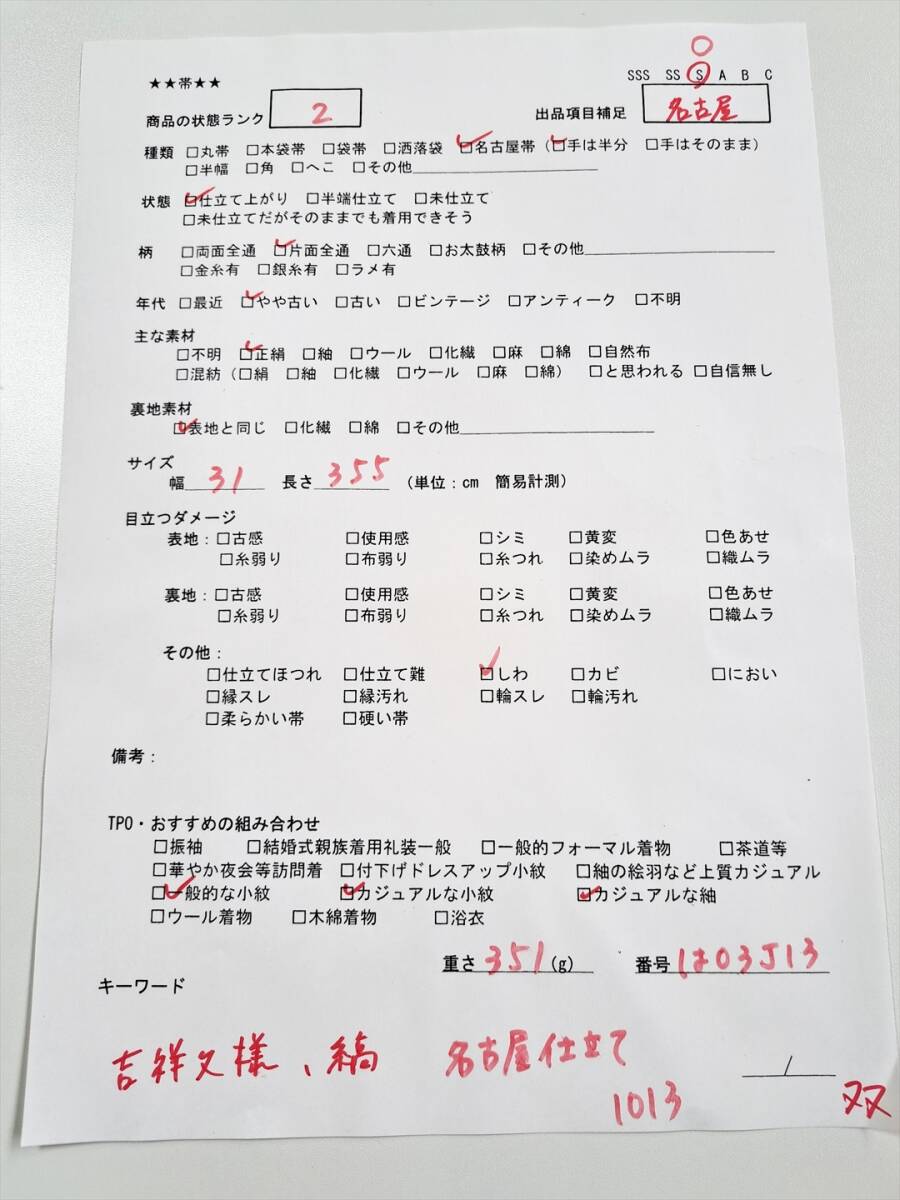 ★★帯★★
SSS SS S A B C
商品の状態ランク 2 出品項目補足 名古屋
種類 □丸帯 □本袋帯 □袋帯 □洒落袋 □名古屋帯(□手は半分 □手はそのまま)
□半幅 □角 □へこ □その他
状態 □仕立て上がり □半端仕立て □未仕立て
□未仕立てだがそのままでも着用できそう
柄 □両面全通 □片面全通 □六通 □お太鼓柄 □その他
□金糸有 □銀糸有 □ラメ有
年代 □最近 □やや古い □古い □ビンテージ □アンティーク □不明
主な素材
□不明 □正絹 □紬 □ウール □化繊 □麻 □綿 □自然布
□混紡(□絹 □紬 □化繊 □ウール □麻 □綿) □と思われる □自信無し
裏地素材
□表地と同じ □化繊 □綿 □その他
サイズ
幅 31 長さ 355 (単位:cm 簡易計測)
目立つダメージ
表地:□古感 □使用感 □シミ □黄変 □色あせ
□糸弱り □布弱り □糸つれ □染めムラ □織ムラ
裏地:□古感 □使用感 □シミ □黄変 □色あせ
□糸弱り □布弱り □糸つれ □染めムラ □織ムラ
その他:
□仕立てほつれ □仕立て難 □しわ □カビ □におい
□縁スレ □縁汚れ □輪スレ □輪汚れ
□柔らかい帯 □硬い帯
備考:
TPO・おすすめの組み合わせ
□振袖 □結婚式親族着用礼装一般 □一般的フォーマル着物 □茶道等
□華やか夜会等訪問着 □付下げドレスアップ小紋 □紬の絵羽など上質カジュアル
□一般的な小紋 □カジュアルな小紋 □カジュアルな紬
□ウール着物 □木綿着物 □浴衣
重さ 351(g) 番号 は03J13
キーワード
吉祥文様、縞 名古屋仕立て
1013